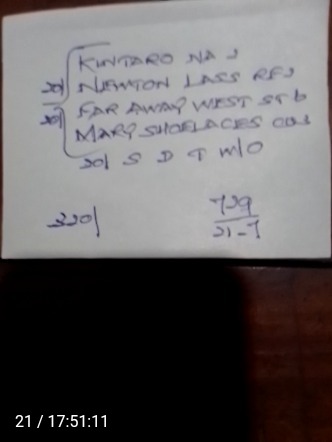 KINTARO NA 2
20/ NEWTON LASS RF2
20/ FAR AWAY WEST ST 6
MARY SHOELACES
20/ S D T W/O
320/
729
21-7
21 / 17:51:11